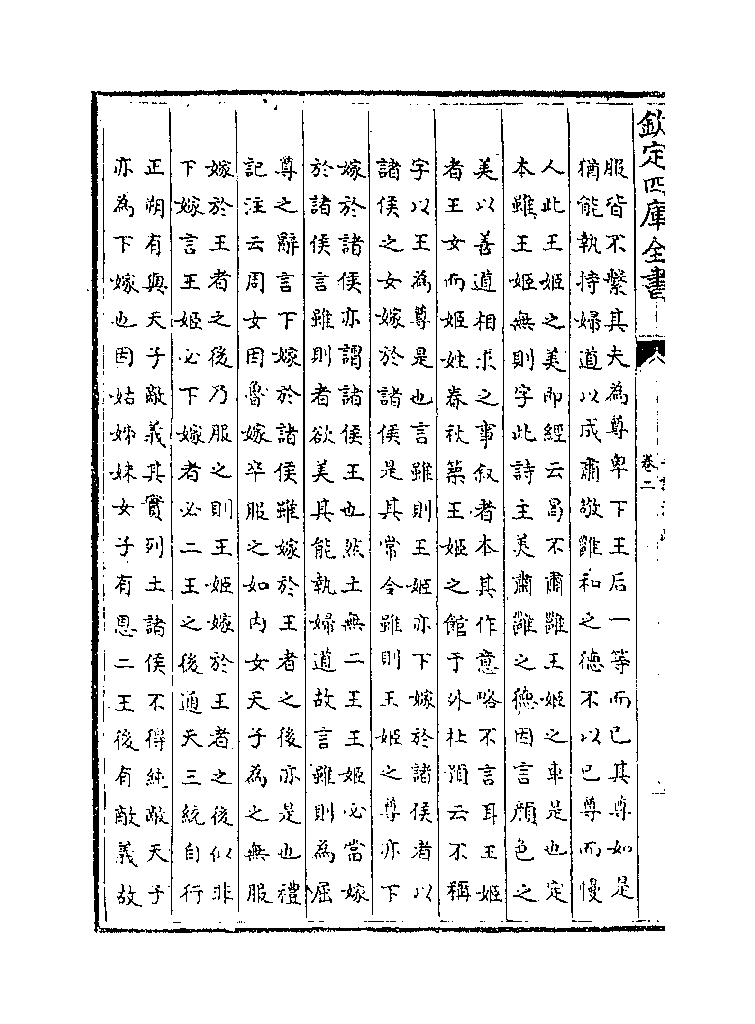 欽定四庫全書
卷二
服皆不繫其夫為尊卑下王后一等而已其尊如是
猶能執持婦道以成肅敬雝和之德不以己尊而慢
人此王姬之美即經云曷不肅雝王姬之車是也定
本雖王姬無則字此詩主美肅雝之德因言顏色之
美以善道相求之事叙者本其作意略不言耳王姬
者王女而姬姓春秋築王姬之館于外杜預云不稱
字以王為尊是也言雖則王姬亦下嫁於諸侯者以
諸侯之女嫁於諸侯是其常令雖則王姬之尊亦下
嫁於諸侯亦謂諸侯王也然土無二王王姬必當嫁
於諸侯言雖則者欲美其能執婦道故言雖則為屈
尊之辭言下嫁於諸侯雖嫁於王者之後亦是也禮
記注云周女因魯嫁卒服之如内女天子為之無服
嫁於王者之後乃服之則王姬嫁於王者之後似非
下嫁言王姬必下嫁者必二王之後通天三統自行
正朔有與天子敵義其實列土諸侯不得純敵天子
亦為下嫁也因姑姊妹女子有恩二王後有敵義故